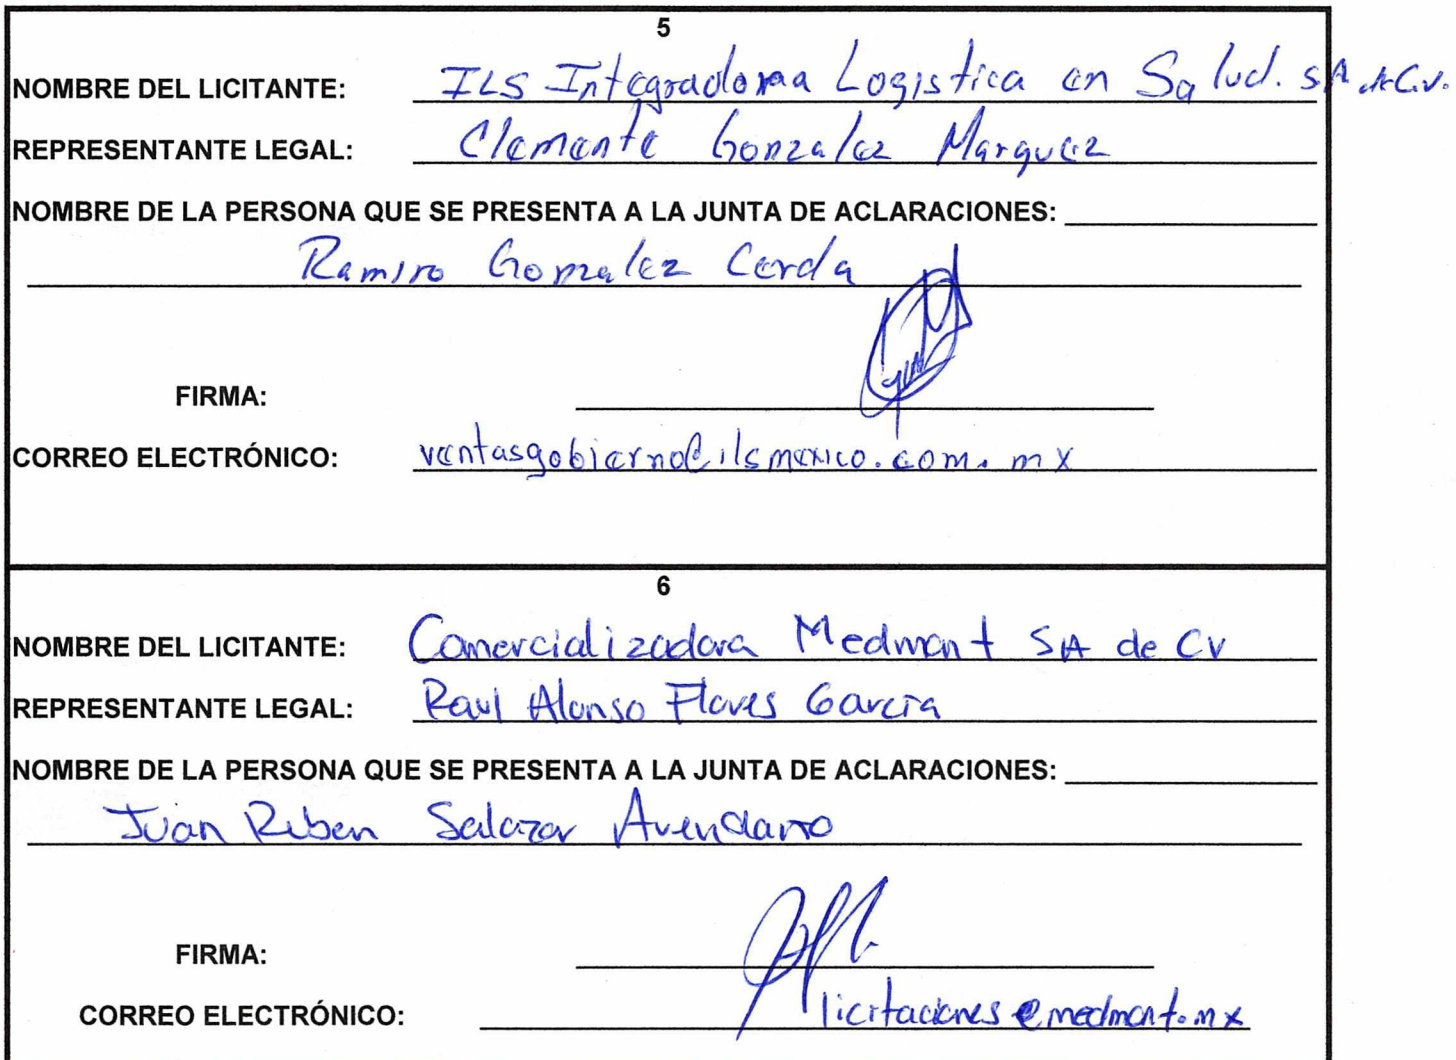 5
NOMBRE DEL LICITANTE: ILS Integradora Logistica en Salud. SA de C.V.
REPRESENTANTE LEGAL: Clemente Gonzalez Marquez
NOMBRE DE LA PERSONA QUE SE PRESENTA A LA JUNTA DE ACLARACIONES:
Ramiro Gonzalez Cerda
FIRMA:
CORREO ELECTRÓNICO: ventasgobierno@ilsmexico.com.mx
6
NOMBRE DEL LICITANTE: Comercializadora Medmont SA de CV
REPRESENTANTE LEGAL: Raul Alonso Flores Garcia
NOMBRE DE LA PERSONA QUE SE PRESENTA A LA JUNTA DE ACLARACIONES:
Juan Ruben Salazar Avendano
FIRMA:
CORREO ELECTRÓNICO: licitaciones@medmont.mx